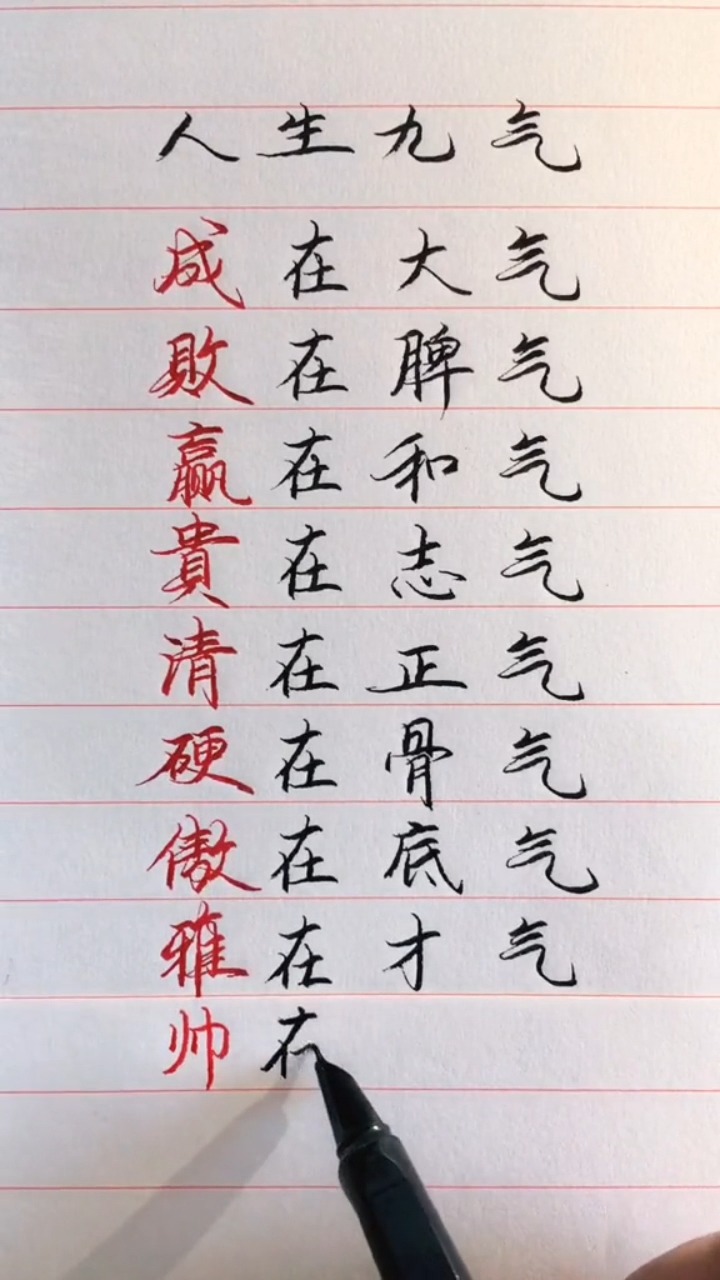 人生九气
成在大气
敗在脾气
赢在和气
貴在志气
清在正气
硬在骨气
傲在底气
雅在才气
帅